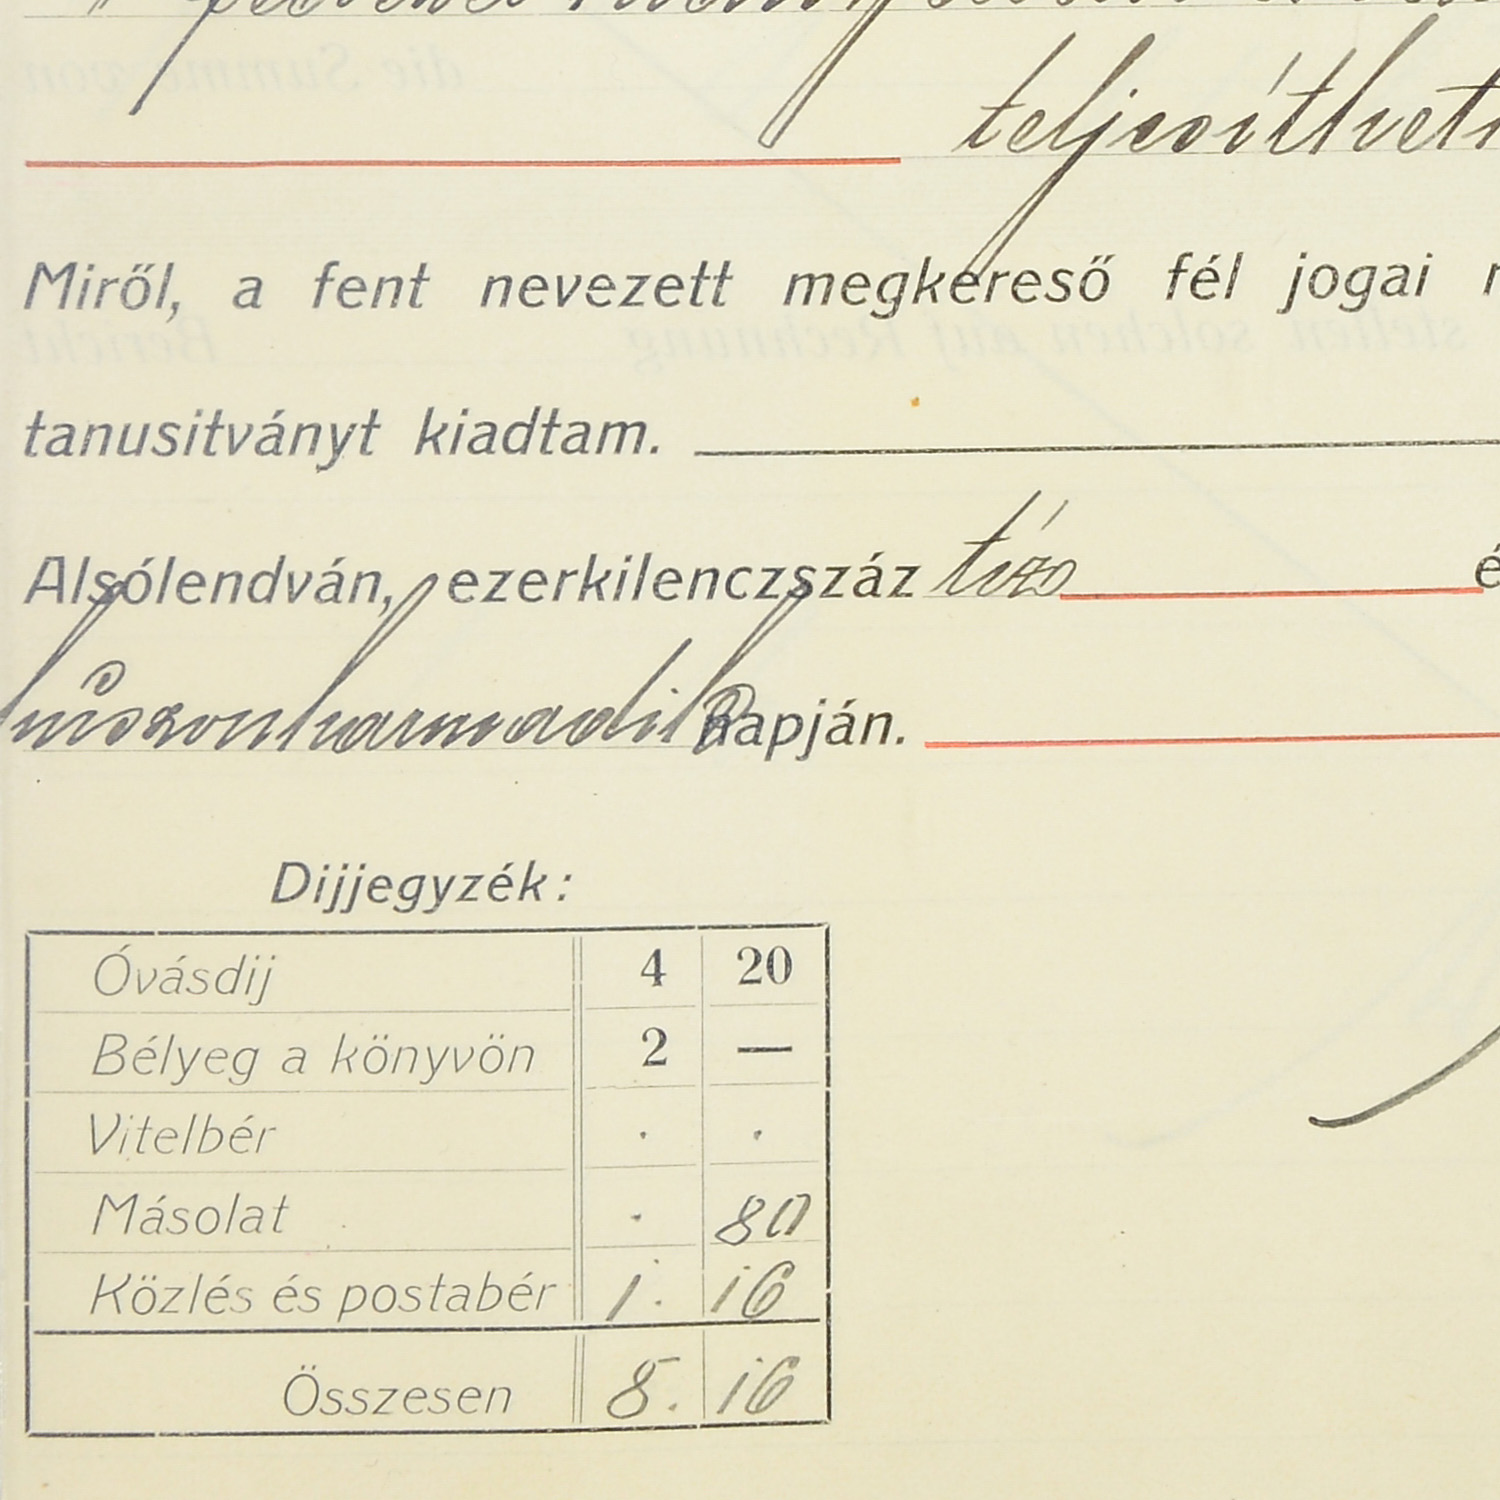 teljesíthet
Miről, a fent nevezett megkereső fél jogai
tanusitványt kiadtam.
Alsólendván, ezerkilenczszáz tíz é
húszonharmadik napján.
Dijjegyzék:
Óvásdij 4 20
Bélyeg a könyvön 2 —
Vitelbér . .
Másolat . 80
Közlés és postabér 1. 16
Összesen 8. 16